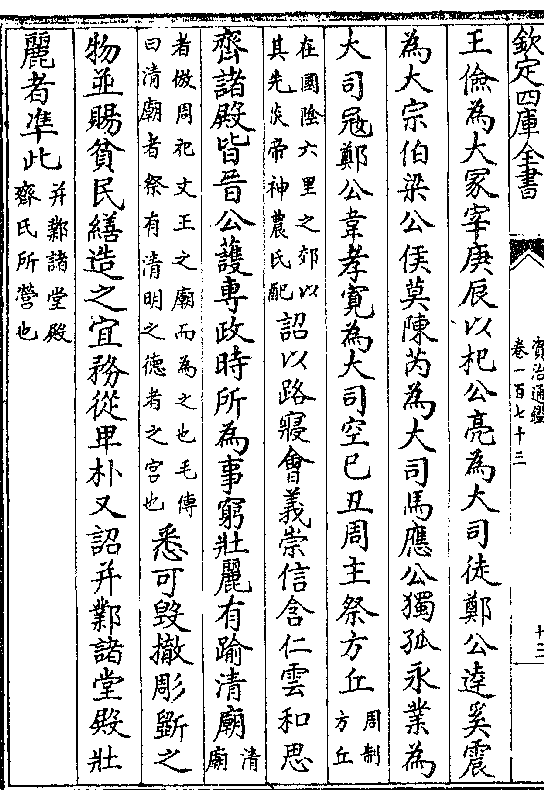 欽定四庫全書
資治通鑑
卷一百七十三
十三
王儉為大冢宰庚辰以杞公亮為大司徒鄭公達奚震
為大宗伯梁公侯莫陳芮為大司馬應公獨孤永業為
大司冦鄭公韋孝寛為大司空已丑周主祭方丘
周制
方丘
在國陰六里之郊以
其先炎帝神農氏配
詔以路寢會義崇信含仁雲和思
齊諸殿皆晉公䕶專政時所為事窮壯麗有踰清廟
清
廟
者倣周祀文王之廟而為之也毛傳
曰清廟者祭有清明之德者之宫也
悉可毀撤彫斲之
物並賜貧民繕造之宜務從卑朴又詔并鄴諸堂殿壯
麗者凖此
并鄴諸堂殿
齊氏所營也